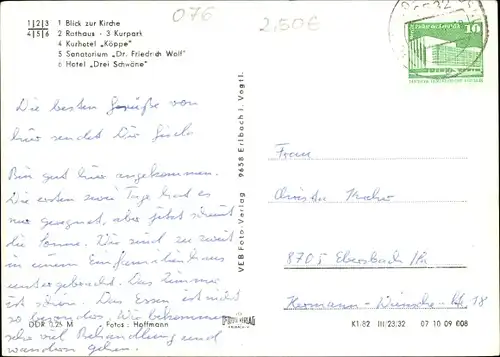 076
2,50€
1|2|3 1 Blick zur Kirche
4|5|6 2 Rathaus · 3 Kurpark
4 Kurhotel „Köppe"
5 Sanatorium „Dr. Friedrich Wolf"
6 Hotel „Drei Schwäne"
10
Die besten Grüße von
hier sendet Dir Gisela
Bin gut hier angekommen.
Die ersten zwei Tage hat es
nur geregnet, aber jetzt scheint
die Sonne. Wir sind zu zweit
in einem Einfamilienhaus
untergebracht. Das Zimmer
ist schön. Das Essen ist nicht
so besonders. Wir bekommen
sehr viel Behandlung und
wandern gehen.
VEB Foto-Verlag 9658 Erlbach i. Vogtl.
Frau
Christa
8705 Ebersbach/
Hermann-
18
DDR 0,25 M Fotos: Hoffmann
K1/82 III/23/32 07 10 09 008